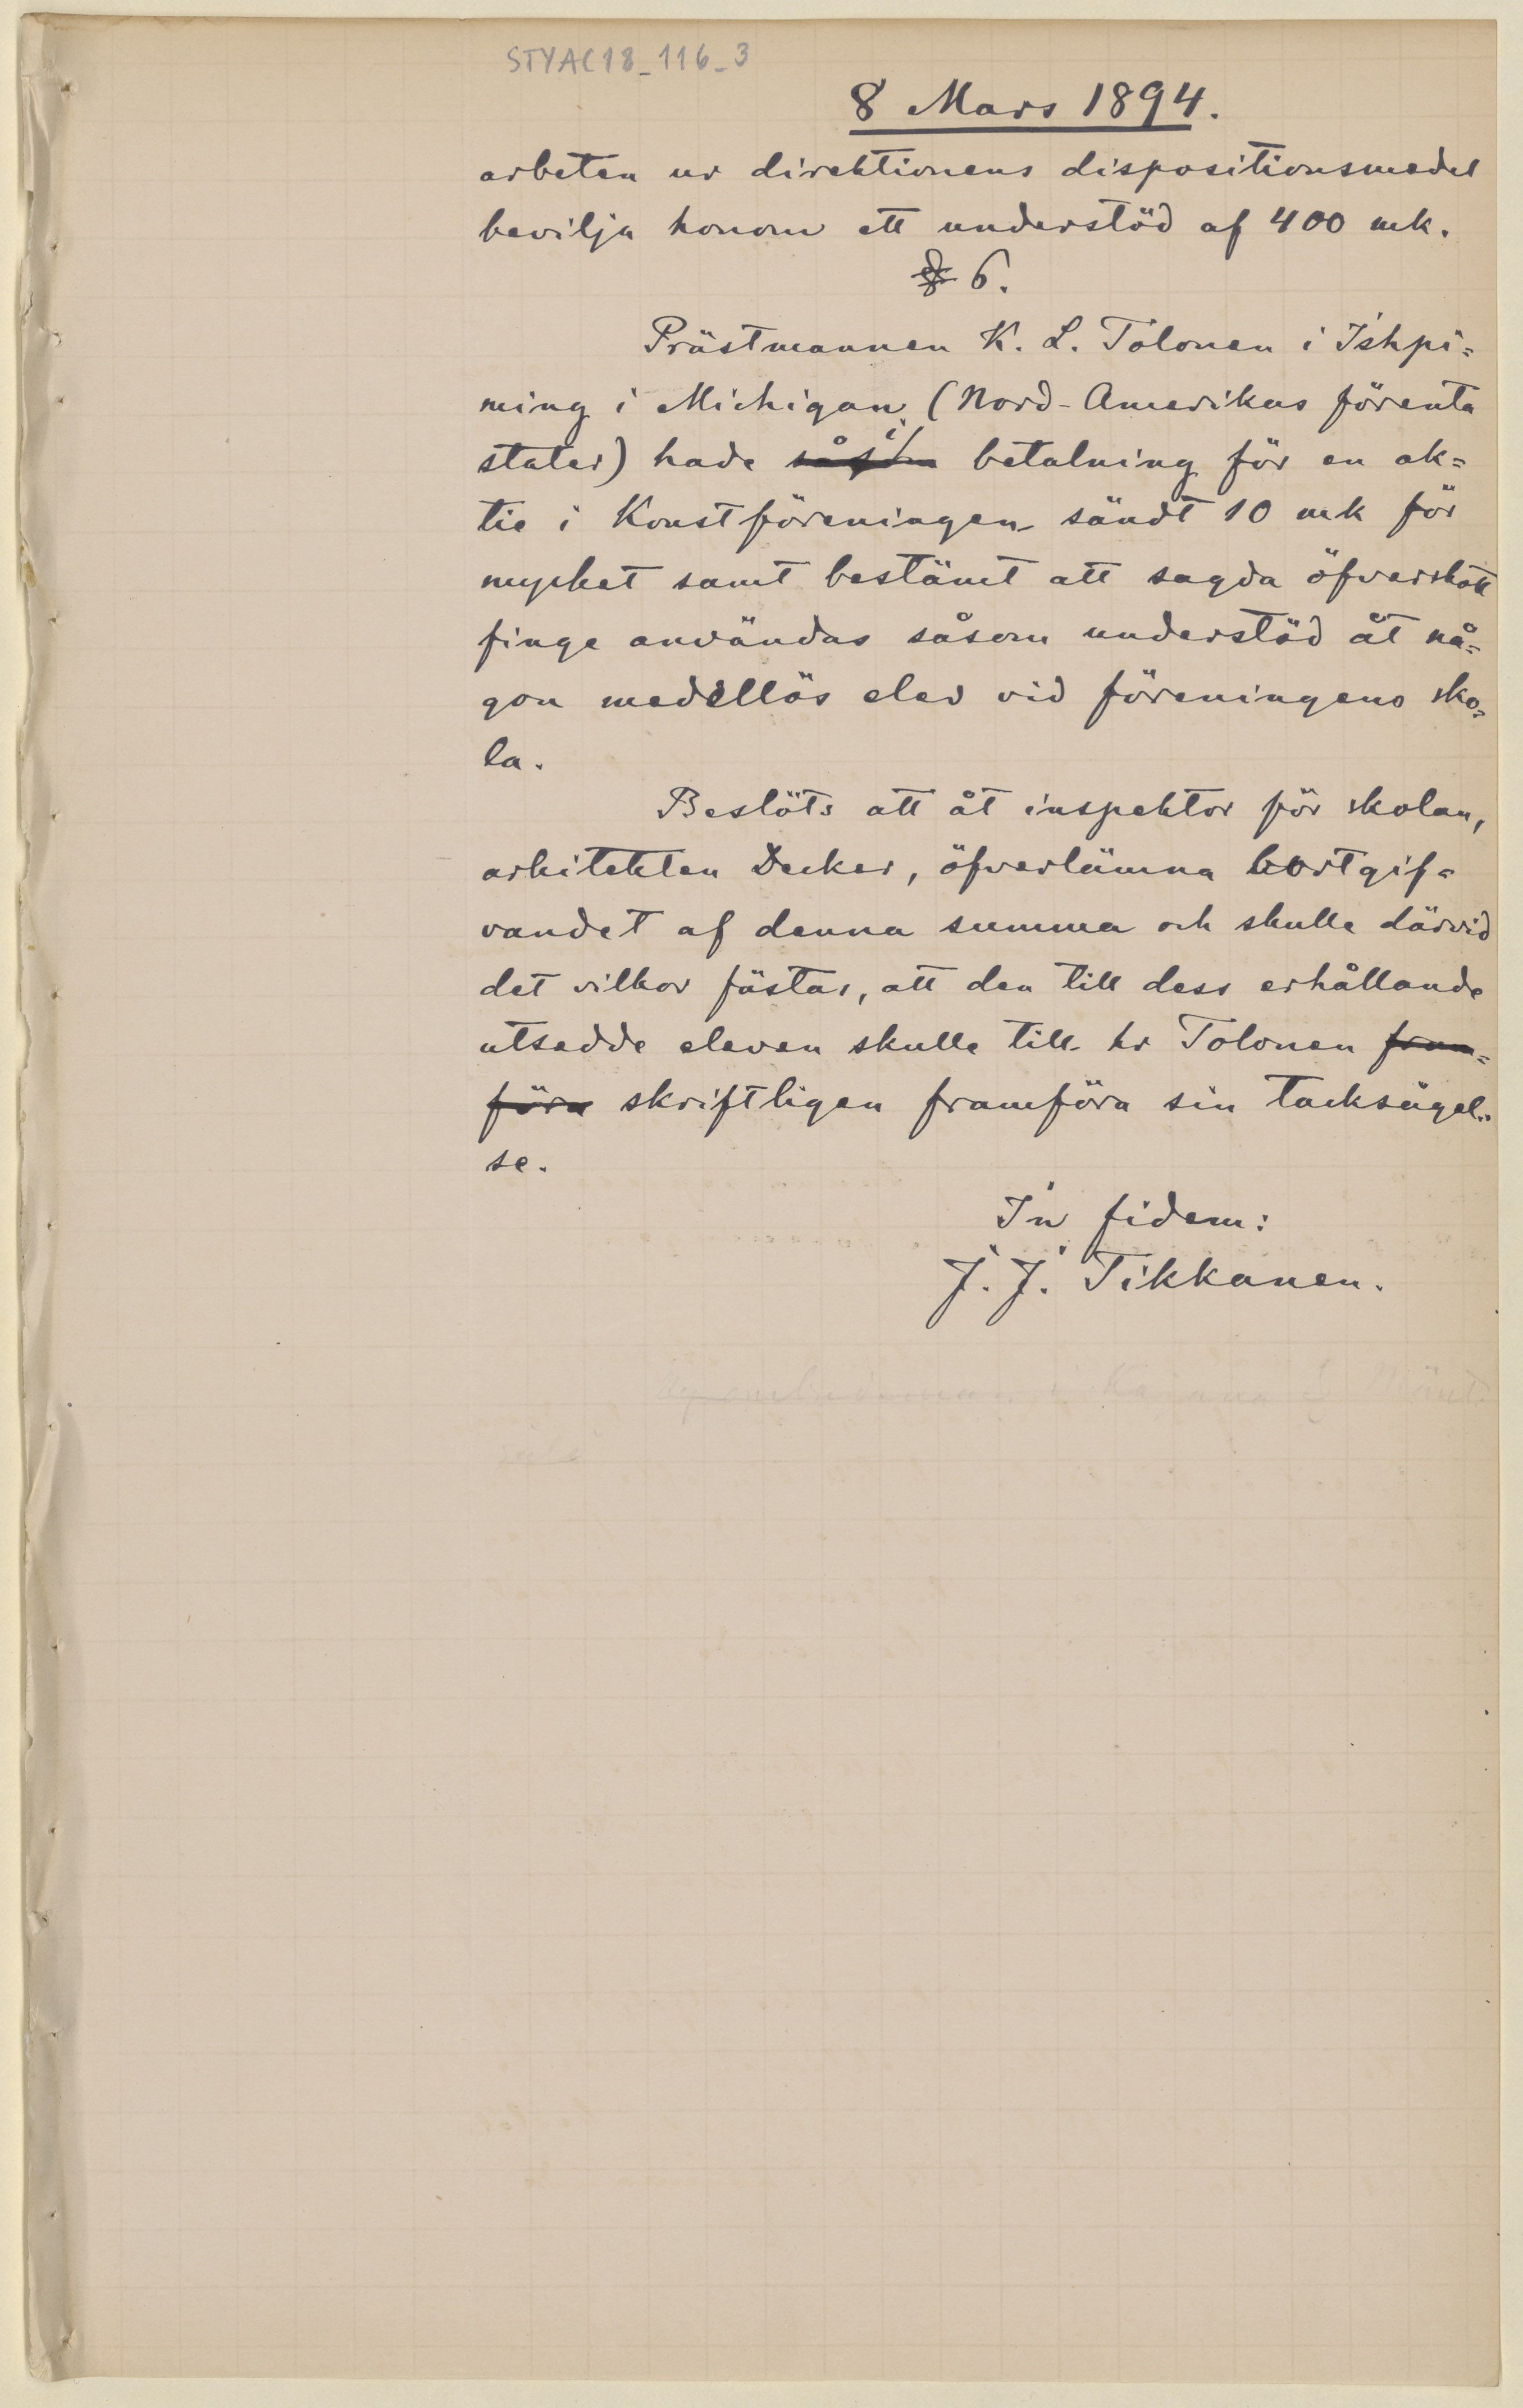 STYAC18_116_3
8 Mars 1894.
arbeten ur direktionens dispositionsmedel
bevilja honom ett understöd af 400 mk.
§ 6.
Prästmannen K. L. Tolonen i Ishpi=
ming i Michigan (Nord-Amerikas förenta
stater) hade såsom i betalning för en ak=
tie i Konstföreningen sändt 10 mk för
mycket samt bestämt att sagda öfverskott
finge användas såsom understöd åt nå=
gon medellös elev vid föreningens sko=
la.
Beslöts att åt inspektor för skolan,
arkitekten Decker, öfverlämna bortgif=
vandet af denna summa och skulle därvid
det vilkor fästas, att den till dess erhållande
utsedde eleven skulle till hr Tolonen fram=
föra skriftligen framföra sin tacksägel=
se.
In fidem:
J. J. Tikkanen.